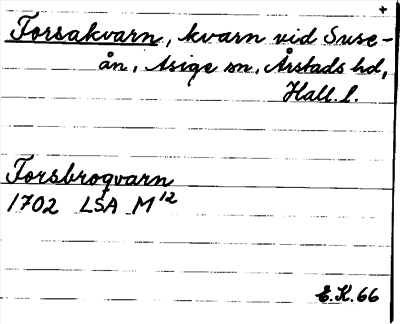 +
Forsakvarn, kvarn vid Suse-
ån, Asige sn, Årstads hd,
Hall. l.
Forsbroqvarn
1702 LSA M 12
E.K. 66